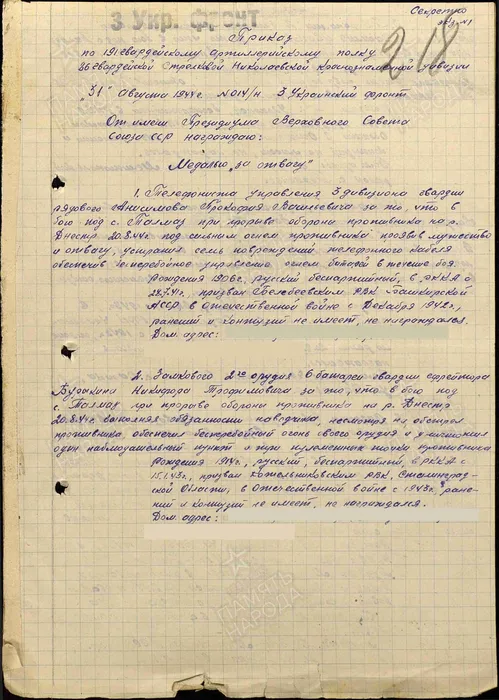 Секретно
экз. №1
3 Укр. фронт
218
Приказ
по 191 гвардейскому артиллерийскому полку
86 гвардейской Стрелковой Николаевской Краснознаменной дивизии
"31" августа 1944г. №014/н 3 Украинский фронт
От имени Президиума Верховного Совета
Союза ССР награждаю:
Медалью "за отвагу"
1. Телефониста управления 3 дивизиона гвардии
рядового Анисимова Прокофия Васильевича за то, что в
бою под с. Талмаз при прорыве обороны противника на р.
Днестр 20.8.44г. под сильным огнем противника проявив мужество
и отвагу, устранил семь повреждений телефонного кабеля
обеспечив бесперебойное управление огнем батарей в течение боя.
Рождения 1906г., русский беспартийный, в РККА с
28.7.41г. призван Белебеевским РВК Башкирской
АССР, в Отечественной войне с Декабря 1942г.,
ранений и контузий не имеет, не награждался.
Дом. адрес:
2. Замкового 2го орудия 6 батареи гвардии ефрейтора
Бурыкина Никифора Трофимовича за то, что в бою под
с. Талмаз при прорыве обороны противника на р. Днестр
20.8.44г. выполняя обязанности наводчика, несмотря на обстрел
противника, обеспечил бесперебойный огонь своего орудия и уничтожил
один наблюдательный пункт и три пулеметных точки противника
Рождения 1914г., русский, беспартийный, в РККА с
15.1.43г., призван Котельниковским РВК, Сталинград-
ской Области, в Отечественной войне с 1943г., ране-
ний и контузий не имеет, не награждался.
Дом. адрес:
ПАМЯТЬ
НАРОДА